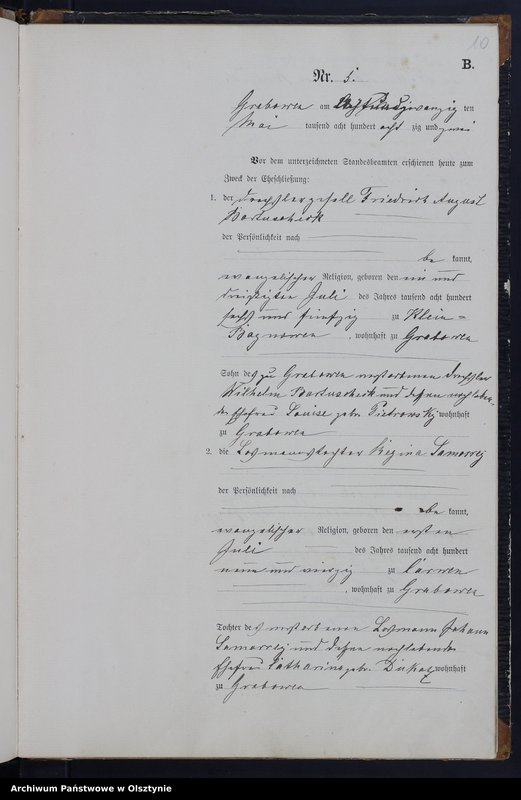 10
B.
Nr. 5.
Grabowen am Acht und zwanzig ten
Mai tausend acht hundert acht zig und zwei
Vor dem unterzeichneten Standesbeamten erschienen heute zum
Zweck der Eheschließung:
1. der Drechslergesell Friedrich August
Bartuscheck
der Persönlichkeit nach
be kannt,
evangelischer Religion, geboren den ein und
dreißigsten Juli des Jahres tausend acht hundert
sechs und fünfzig zu Klein-
Bagnowen, wohnhaft zu Grabowen
Sohn des zu Grabowen verstorbenen Drechsler
Wilhelm Bartuscheck und dessen nachleben-
den Ehefrau Louise geb. Pietrowsky wohnhaft
zu Grabowen
2. die Losmannstochter Regina Samorrej
der Persönlichkeit nach
be kannt,
evangelischer Religion, geboren den ersten
Juli des Jahres tausend acht hundert
neun und vierzig zu
, wohnhaft zu Grabowen
Tochter des verstorbenen Losmann Johann
Samorrej und dessen nachlebenden
Ehefrau Catharina geb. wohnhaft
zu Grabowen
Archiwum Państwowe w Olsztynie